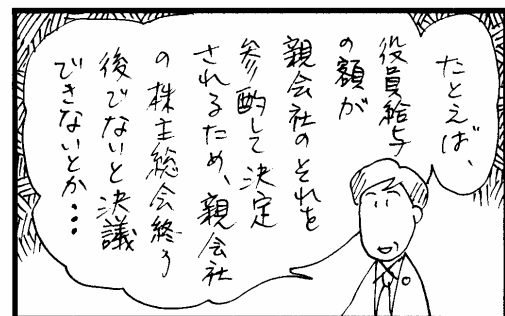 たとえば、
役員給与
の額が
親会社のそれを
参酌して決定
されるため、親会社
の株主総会終う
後でないと決議
できないとか・・・